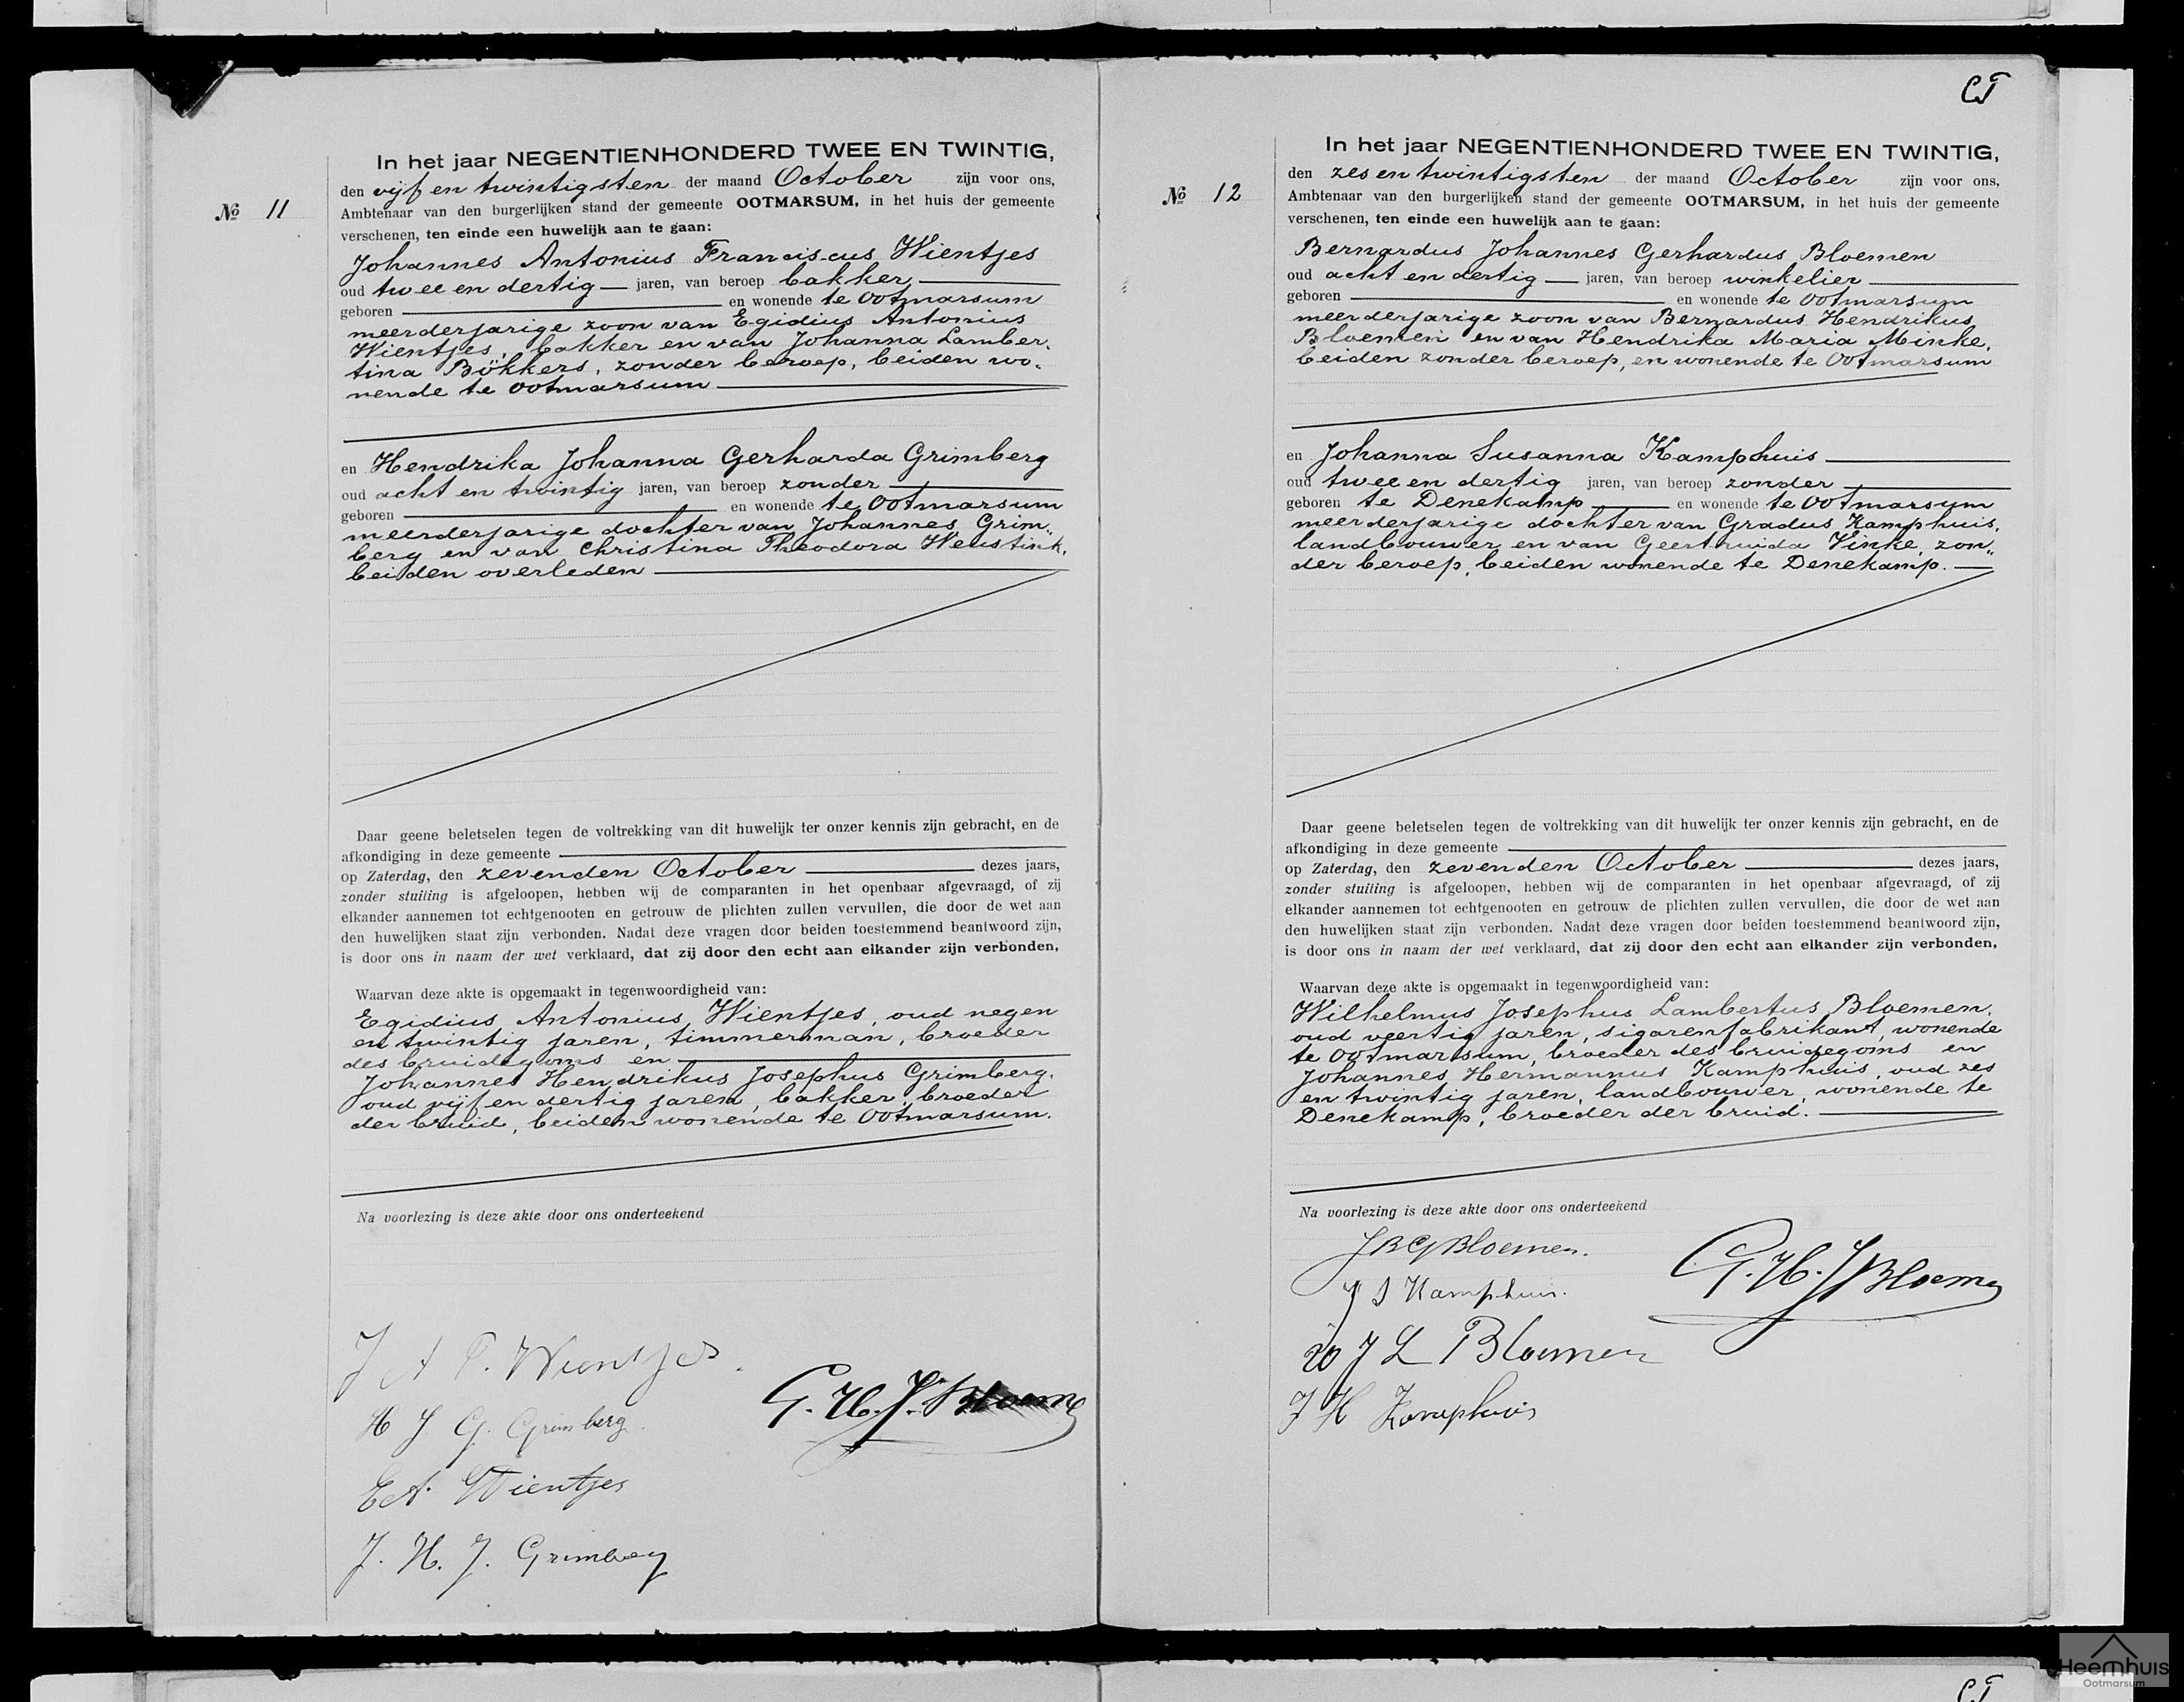 No 11
In het jaar NEGENTIENHONDERD TWEE EN TWINTIG,
den vijf en twintigsten der maand October zijn voor ons,
Ambtenaar van den burgerlijken stand der gemeente OOTMARSUM, in het huis der gemeente
verschenen, ten einde een huwelijk aan te gaan:
Johannes Antonius Franciscus Wientjes
oud twee en dertig jaren, van beroep bakker
geboren en wonende te Ootmarsum
meerderjarige zoon van Egidius Antonius
Wientjes, bakker en van Johanna Lamber-
tina Bökkers, zonder beroep, beiden wo-
nende te Ootmarsum
en Hendrika Johanna Gerharda Grimberg
oud acht en twintig jaren, van beroep zonder
geboren en wonende te Ootmarsum
meerderjarige dochter van Johannes Grim-
berg en van Christina Theodora Weustink,
beiden overleden
Daar geene beletselen tegen de voltrekking van dit huwelijk ter onzer kennis zijn gebracht, en de
afkondiging in deze gemeente
op Zaterdag, den zevenden October dezes jaars,
zonder stuiting is afgeloopen, hebben wij de comparanten in het openbaar afgevraagd, of zij
elkander aannemen tot echtgenooten en getrouw de plichten zullen vervullen, die door de wet aan
den huwelijken staat zijn verbonden. Nadat deze vragen door beiden toestemmend beantwoord zijn,
is door ons in naam der wet verklaard, dat zij door den echt aan elkander zijn verbonden,
Waarvan deze akte is opgemaakt in tegenwoordigheid van:
Egidius Antonius Wientjes, oud negen
en twintig jaren, timmerman, broeder
des bruidegoms en
Johannes Hendrikus Josephus Grimberg,
oud vijf en dertig jaren, bakker, broeder
der bruid, beiden wonende te Ootmarsum.
Na voorlezing is deze akte door ons onderteekend
J A F. Wientjes.
H J G. Grimberg.
G. H. J. Bloemen
E A. Wientjes
J. H. J. Grimberg
CT
No 12
In het jaar NEGENTIENHONDERD TWEE EN TWINTIG,
den zes en twintigsten der maand October zijn voor ons,
Ambtenaar van den burgerlijken stand der gemeente OOTMARSUM, in het huis der gemeente
verschenen, ten einde een huwelijk aan te gaan:
Bernardus Johannes Gerhardus Bloemen
oud acht en dertig jaren, van beroep winkelier
geboren en wonende te Ootmarsum
meerderjarige zoon van Bernardus Hendrikus
Bloemen en van Hendrika Maria Minke,
beiden zonder beroep, en wonende te Ootmarsum
en Johanna Susanna Kamphuis
oud twee en dertig jaren, van beroep zonder
geboren te Denekamp en wonende te Ootmarsum
meerderjarige dochter van Gradus Kamphuis,
landbouwer en van Geertruida Vinke, zon-
der beroep, beiden wonende te Denekamp.
Daar geene beletselen tegen de voltrekking van dit huwelijk ter onzer kennis zijn gebracht, en de
afkondiging in deze gemeente
op Zaterdag, den zevenden October dezes jaars,
zonder stuiting is afgeloopen, hebben wij de comparanten in het openbaar afgevraagd, of zij
elkander aannemen tot echtgenooten en getrouw de plichten zullen vervullen, die door de wet aan
den huwelijken staat zijn verbonden. Nadat deze vragen door beiden toestemmend beantwoord zijn,
is door ons in naam der wet verklaard, dat zij door den echt aan elkander zijn verbonden,
Waarvan deze akte is opgemaakt in tegenwoordigheid van:
Wilhelmus Josephus Lambertus Bloemen,
oud veertig jaren, sigarenfabrikant, wonende
te Ootmarsum, broeder des bruidegoms en
Johannes Hermannus Kamphuis, oud zes
en twintig jaren, landbouwer, wonende te
Denekamp, broeder der bruid.
Na voorlezing is deze akte door ons onderteekend
J B G Bloemen.
J S Kamphuis.
G. H. J Bloemen
W J L Bloemen
J H Kamphuis
CT
Heemhuis
Ootmarsum